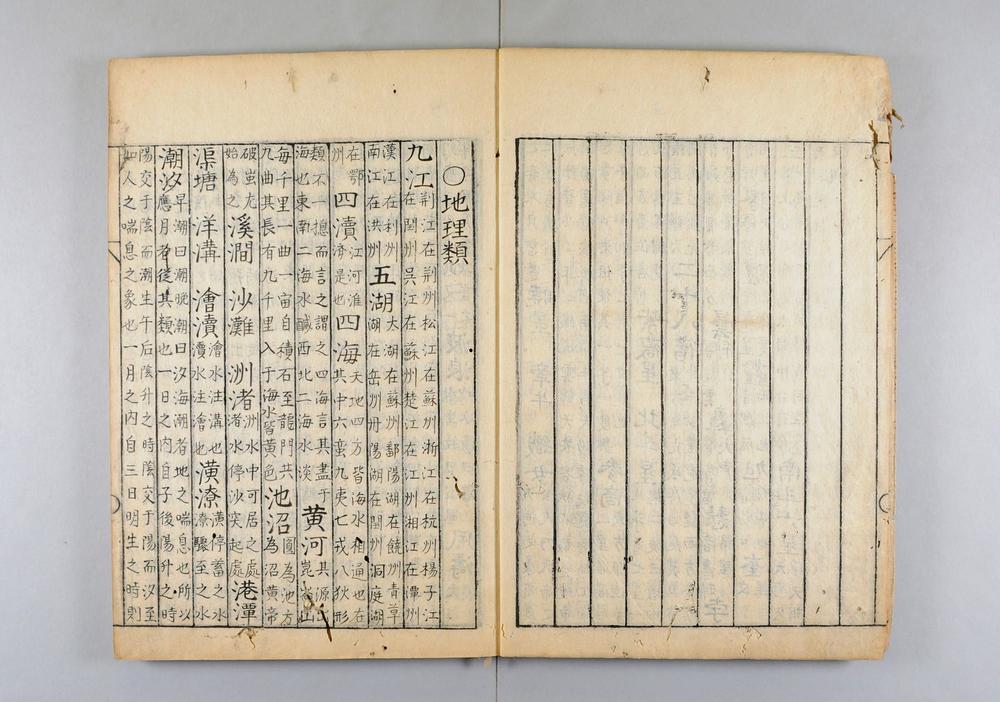 ○地理類
九江荆江在荆州松江在蘇州浙江在杭州楊子江在閏州吳江在蘇州楚江在江州相江在潭州
漢江在利州南江在洪州五湖太湖在蘇州鄱陽湖在饒州青草湖在岳州丹陽湖在閏州洞庭湖
在鄂州四瀆江河淮濟是也四海天地四方皆海水相通也在其中六蛮九夷七戎八狄形
類不一揔而言之謂之四海言其盡于海也東南二海水鹹西北二海水淡黄河其源出崑崙山
每千里一曲一宙自積石至龍門共九曲其長有九千里入于海水皆黄色池沼圓為池方為沼黄帝
破蚩尤始為之溪澗沙灘洲渚洲水中可居之處渚水停沙突起處港潭
渠塘洋溝澮瀆澮水注溝也瀆水注澮也潢潦潢停蓄之水潦驟至之水
潮汐早潮曰潮晚潮曰汐海潮者地之喘息也所以應月者從其類也一日之内自子後陽升之時
陽交于陰而潮生午后陰升之時陰交于陽而汐至如人之喘息之象也一月之内自三日明生之時則